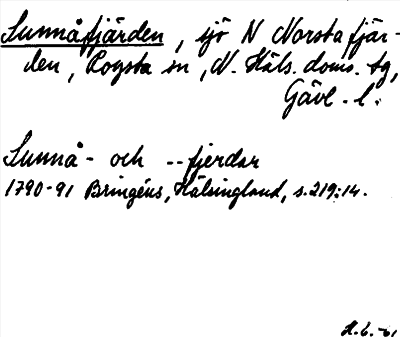 Sunnåfjärden, sjö N Norstafjär-
den, Rogsta sn, N. Häls. doms. tg,
Gävl. l.
Sunnå- och --fjerdar
1790-91 Bringéus, Hälsingland, s.219:14.